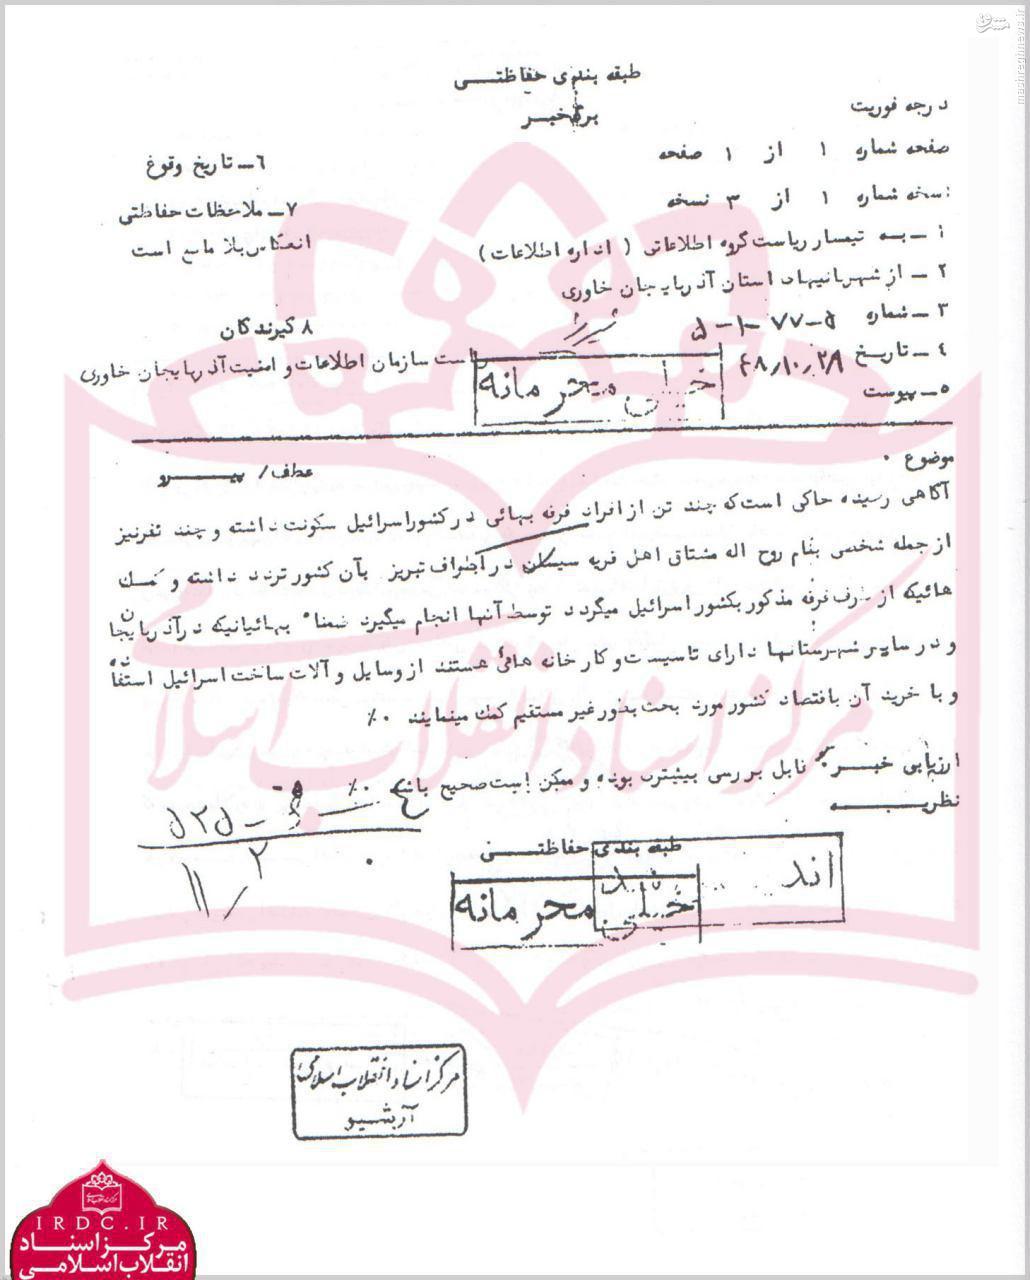 مشرق
mashreghnews.ir
طبقه بندی حفاظتی
برگ خبر
درجه فوریت
صفحه شماره ۱ از ۱ صفحه
نسخه شماره ۱ از ۳ نسخه
۱ - به تیمسار ریاست گروه اطلاعاتی ( اداره اطلاعات )
۲ - از شهربانیهاد استان آذربایجان خاوری
۳ - شماره ۵-۷۷-۱-۵
۴ - تاریخ ۴۸/۱۰/۲۹
۵ - پیوست
۶ - تاریخ وقوع
۷ - ملاحظات حفاظتی
انعکاس بلا مانع است
۸ گیرندگان
است سازمان اطلاعات و امنیت آذربایجان خاوری
خیلی محرمانه
موضوع
عطف / پیرو
آگاهی رسیده حاکی است که چند تن از افراد فرقه بهائی در کشور اسرائیل سکونت داشته و چند نفر نیز
از جمله شخصی بنام روح اله مشتاق اهل قریه سیسان در اطراف تبریز بآن کشور تردد داشته و کمک
هائیکه از طرف فرقه مذکور بکشور اسرائیل میگردد توسط آنها انجام میگیرد ضمنا بهائیانیکه در آذربایجان
و در سایر شهرستانها دارای تاسیسات و کارخانه هائی هستند از وسایل و آلات ساخت اسرائیل استفاده
و با خرید آن باقتصاد کشور مورد بحث بطور غیر مستقیم کمک مینمایند ٪
ارزیابی خبر قابل بررسی بیشتری بوده و ممکن است صحیح باشد ٪
نظریه
طبقه بندی حفاظتی
خیلی محرمانه
مرکز اسناد انقلاب اسلامی
آرشیو
مرکز اسناد انقلاب اسلامی
IRDC.IR
مرکز اسناد
انقلاب اسلامی